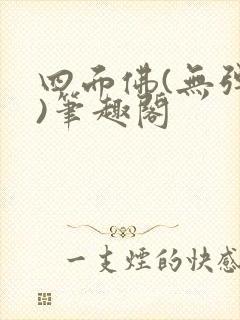 四而佛(無弹
)笔趣阁
一支煙的快感